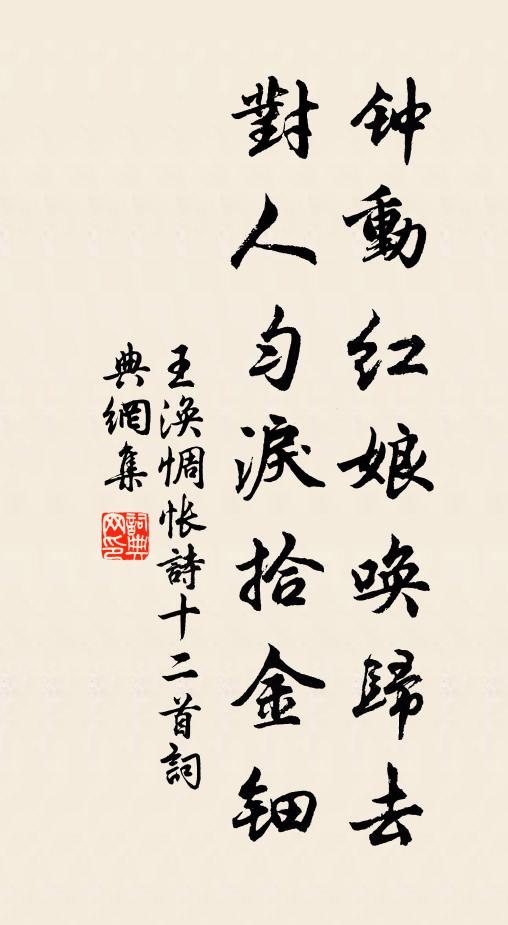 钟動红娘唤歸去
對人匀淚拾金钿
王渙惆怅詩十二首詞
典網集
詞典
网印